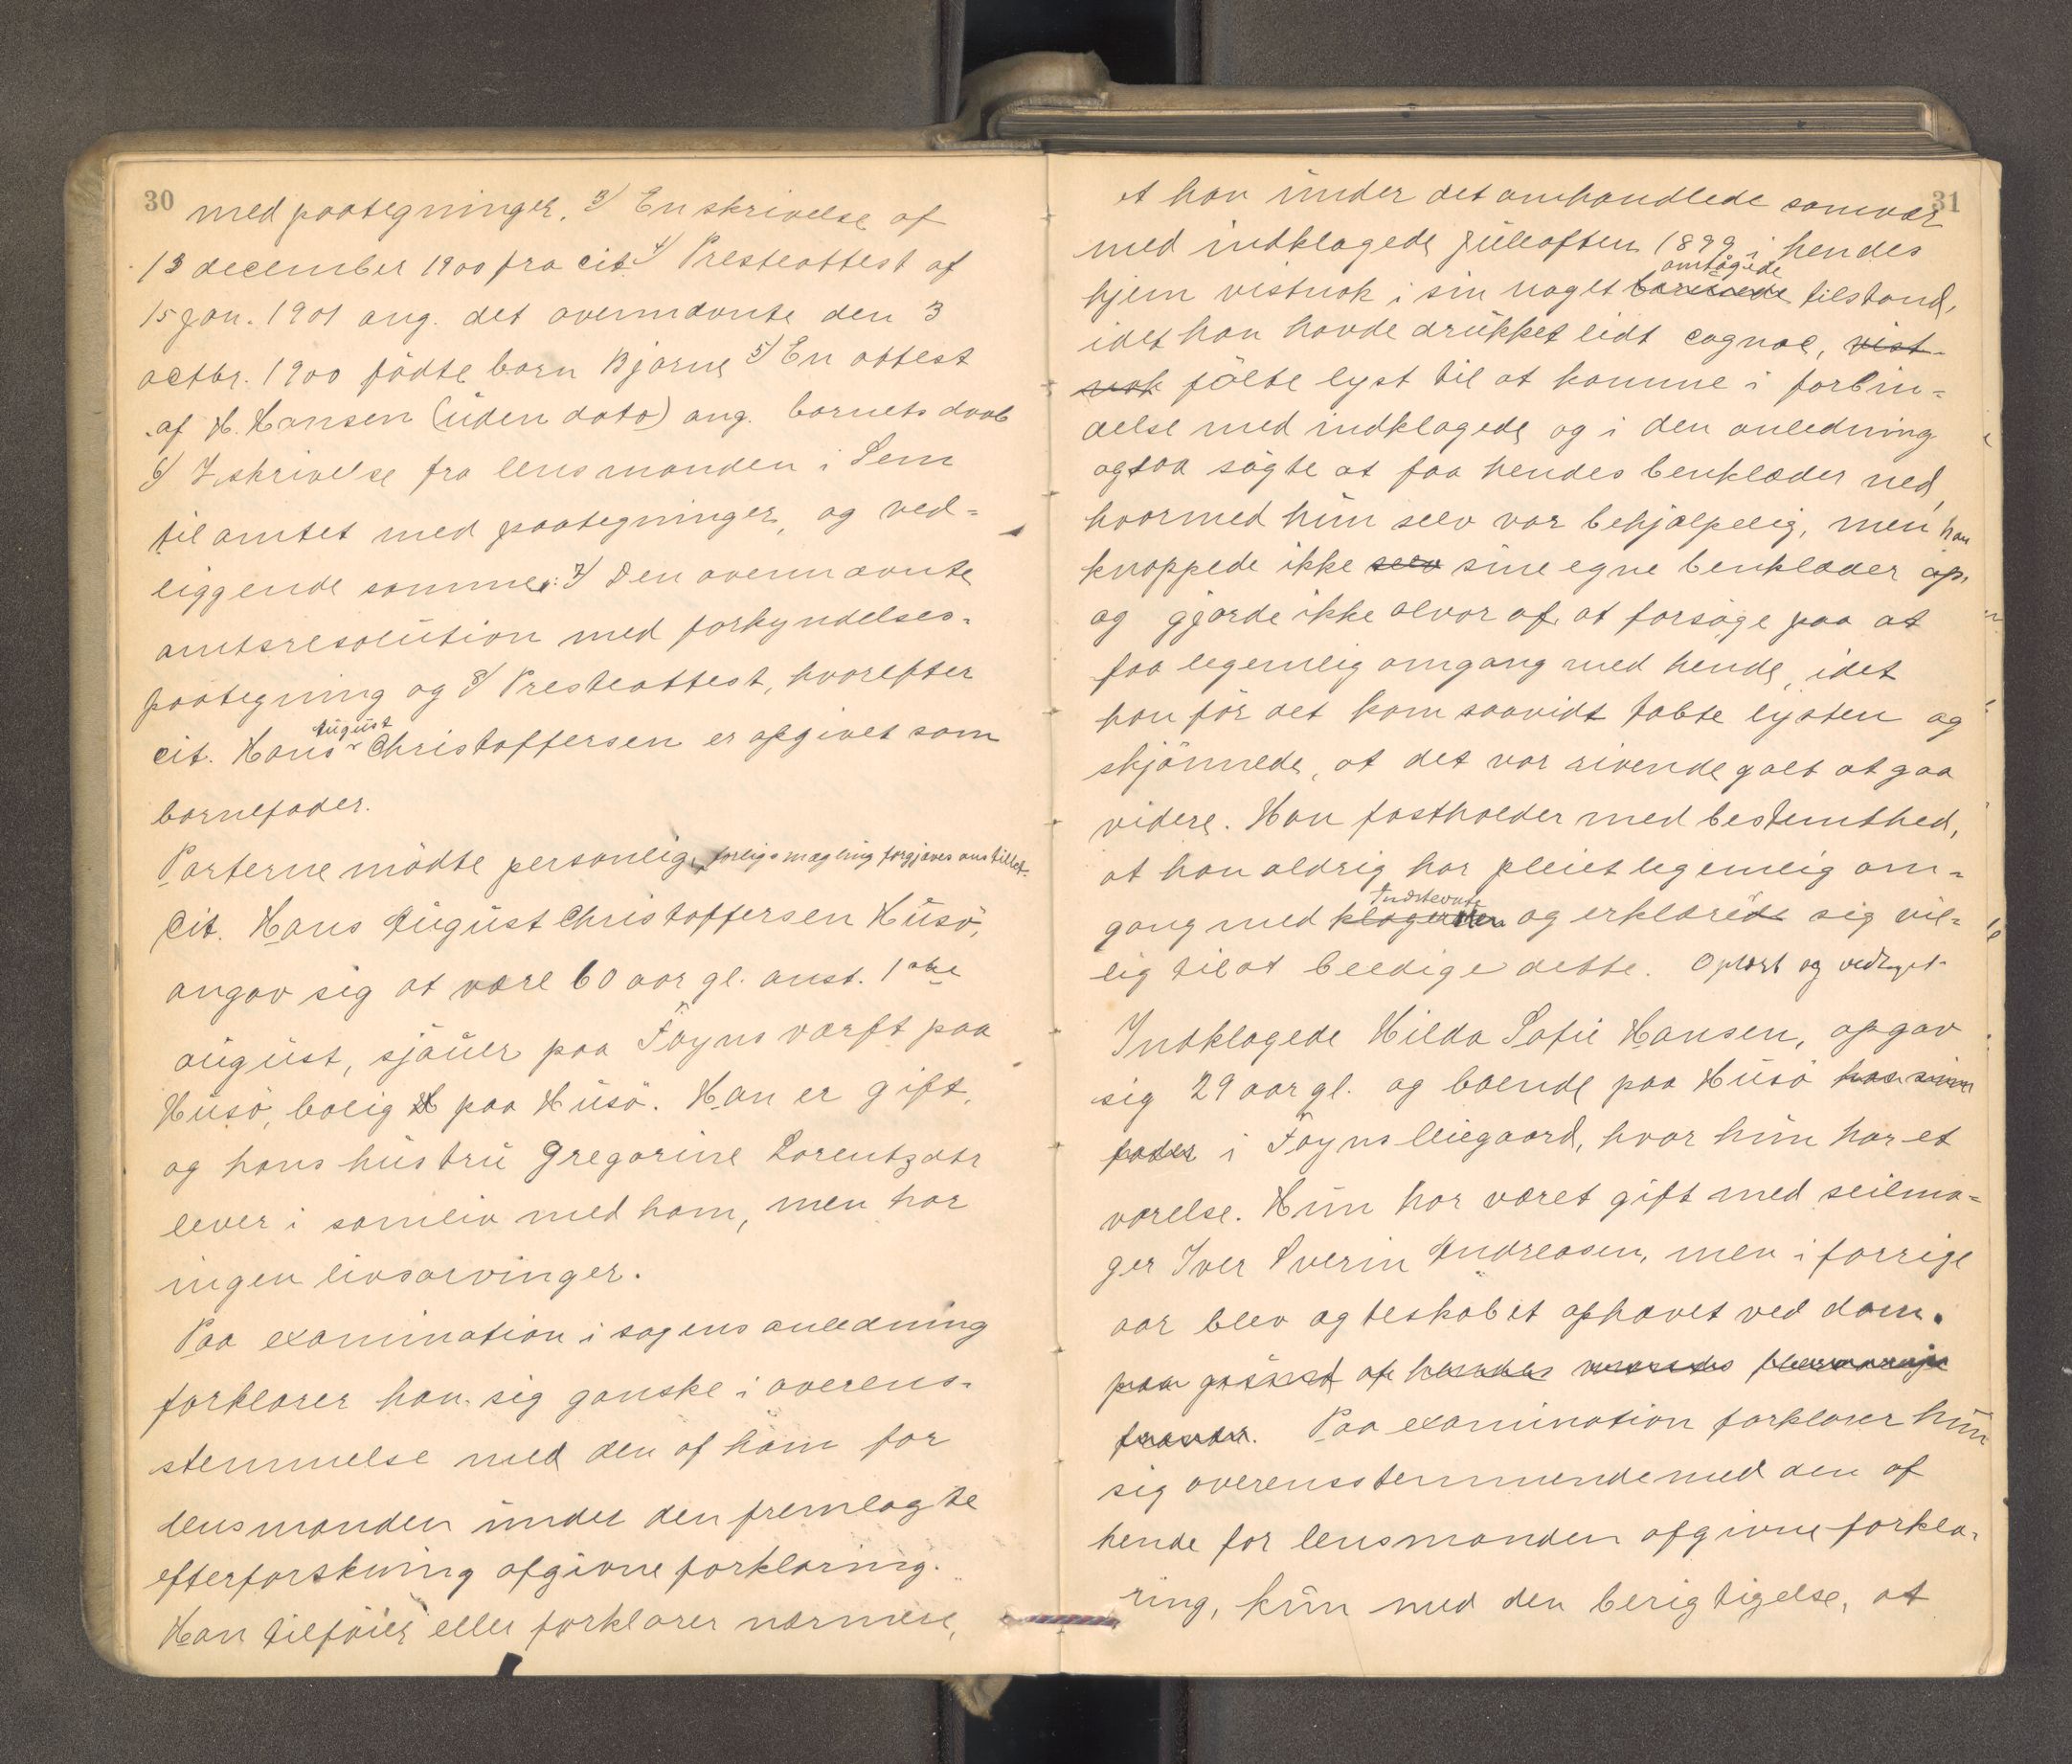 30
med paategninger. 3) En skrivelse af
13 december 1900 fra cit. 4) Presteattest af
15 jan. 1901 ang. det ovennævnte den 3
octbr. 1900 födte barn Bjarne 5) En attest
af H. Hansen (uden dato) ang. barnets daab
6) skrivelse fra lensmanden i Sem
til amtet med paategninger, og ved-
liggende somme: 7) Den ovennævnte
amtsresolution med forkyndelses-
paategning og 8) Presteattest, hvorefter
August
cit. Hans Christoffersen er opgivet som
barnefader.
Parterne mödte personlig, forligsmægling forgjæves anstillet.
Cit. Hans August Christoffersen Husö,
angav sig at være 60 aar gl. anst. 1ste
august, sjauer paa Föyns værft paa
Husö, bolig paa Husö. Han er gift,
og hans hustru Gregorine Lorentzdtr
lever i samliv med ham, men har
ingen livsarvinger.
Paa examination i sagens anledning
forklarer han sig ganske i overens-
stemmelse med den af ham for
lensmanden under den fremlagte
efterforskning afgivne forklaring.
Han tilföier eller forklarer nærmere,
31
at han under det omhandlede samvær
med indklagede juleaften 1899 i hendes
omtågede
hjem vistnok i sin noget tilstand,
idet han havde drukket lidt cognac, vist-
nok fölte lyst til at komme i forbin-
delse med indklagede og i den anledning
ogsaa sögte at faa hendes benklæder ned,
hvormed hun selv var behjælpelig, men han
knappede ikke selv sine egne benklæder op,
og gjorde ikke alvor af at forsöge paa at
faa legemlig omgang med hende, idet
han för det kom saavidt tabte lysten og
skjönnede, at det var rivende galt at gaa
videre. Han fastholder med bestemthed,
at han aldrig har pleiet legemlig om-
Indstevnte
gang med klagerden og erklærede sig vil-
lig til at beedige dette. Oplæst og vedtaget.
Indklagede Hilda Sofie Hansen, opgav
sig 29 aar gl. og boende paa Husö hos sin
fader i Föyns leiegaard, hvor hun har et
værelse. Hun har været gift med seilma-
ger Iver Sverin Andreasen, men i forrige
aar blev ægteskabet ophævet ved dom.
paa grund af hendes
Paa examination forklarer hun
sig overensstemmende med den af
hende for lensmanden afgivne forkla-
ring, kun med den berigtigelse, at